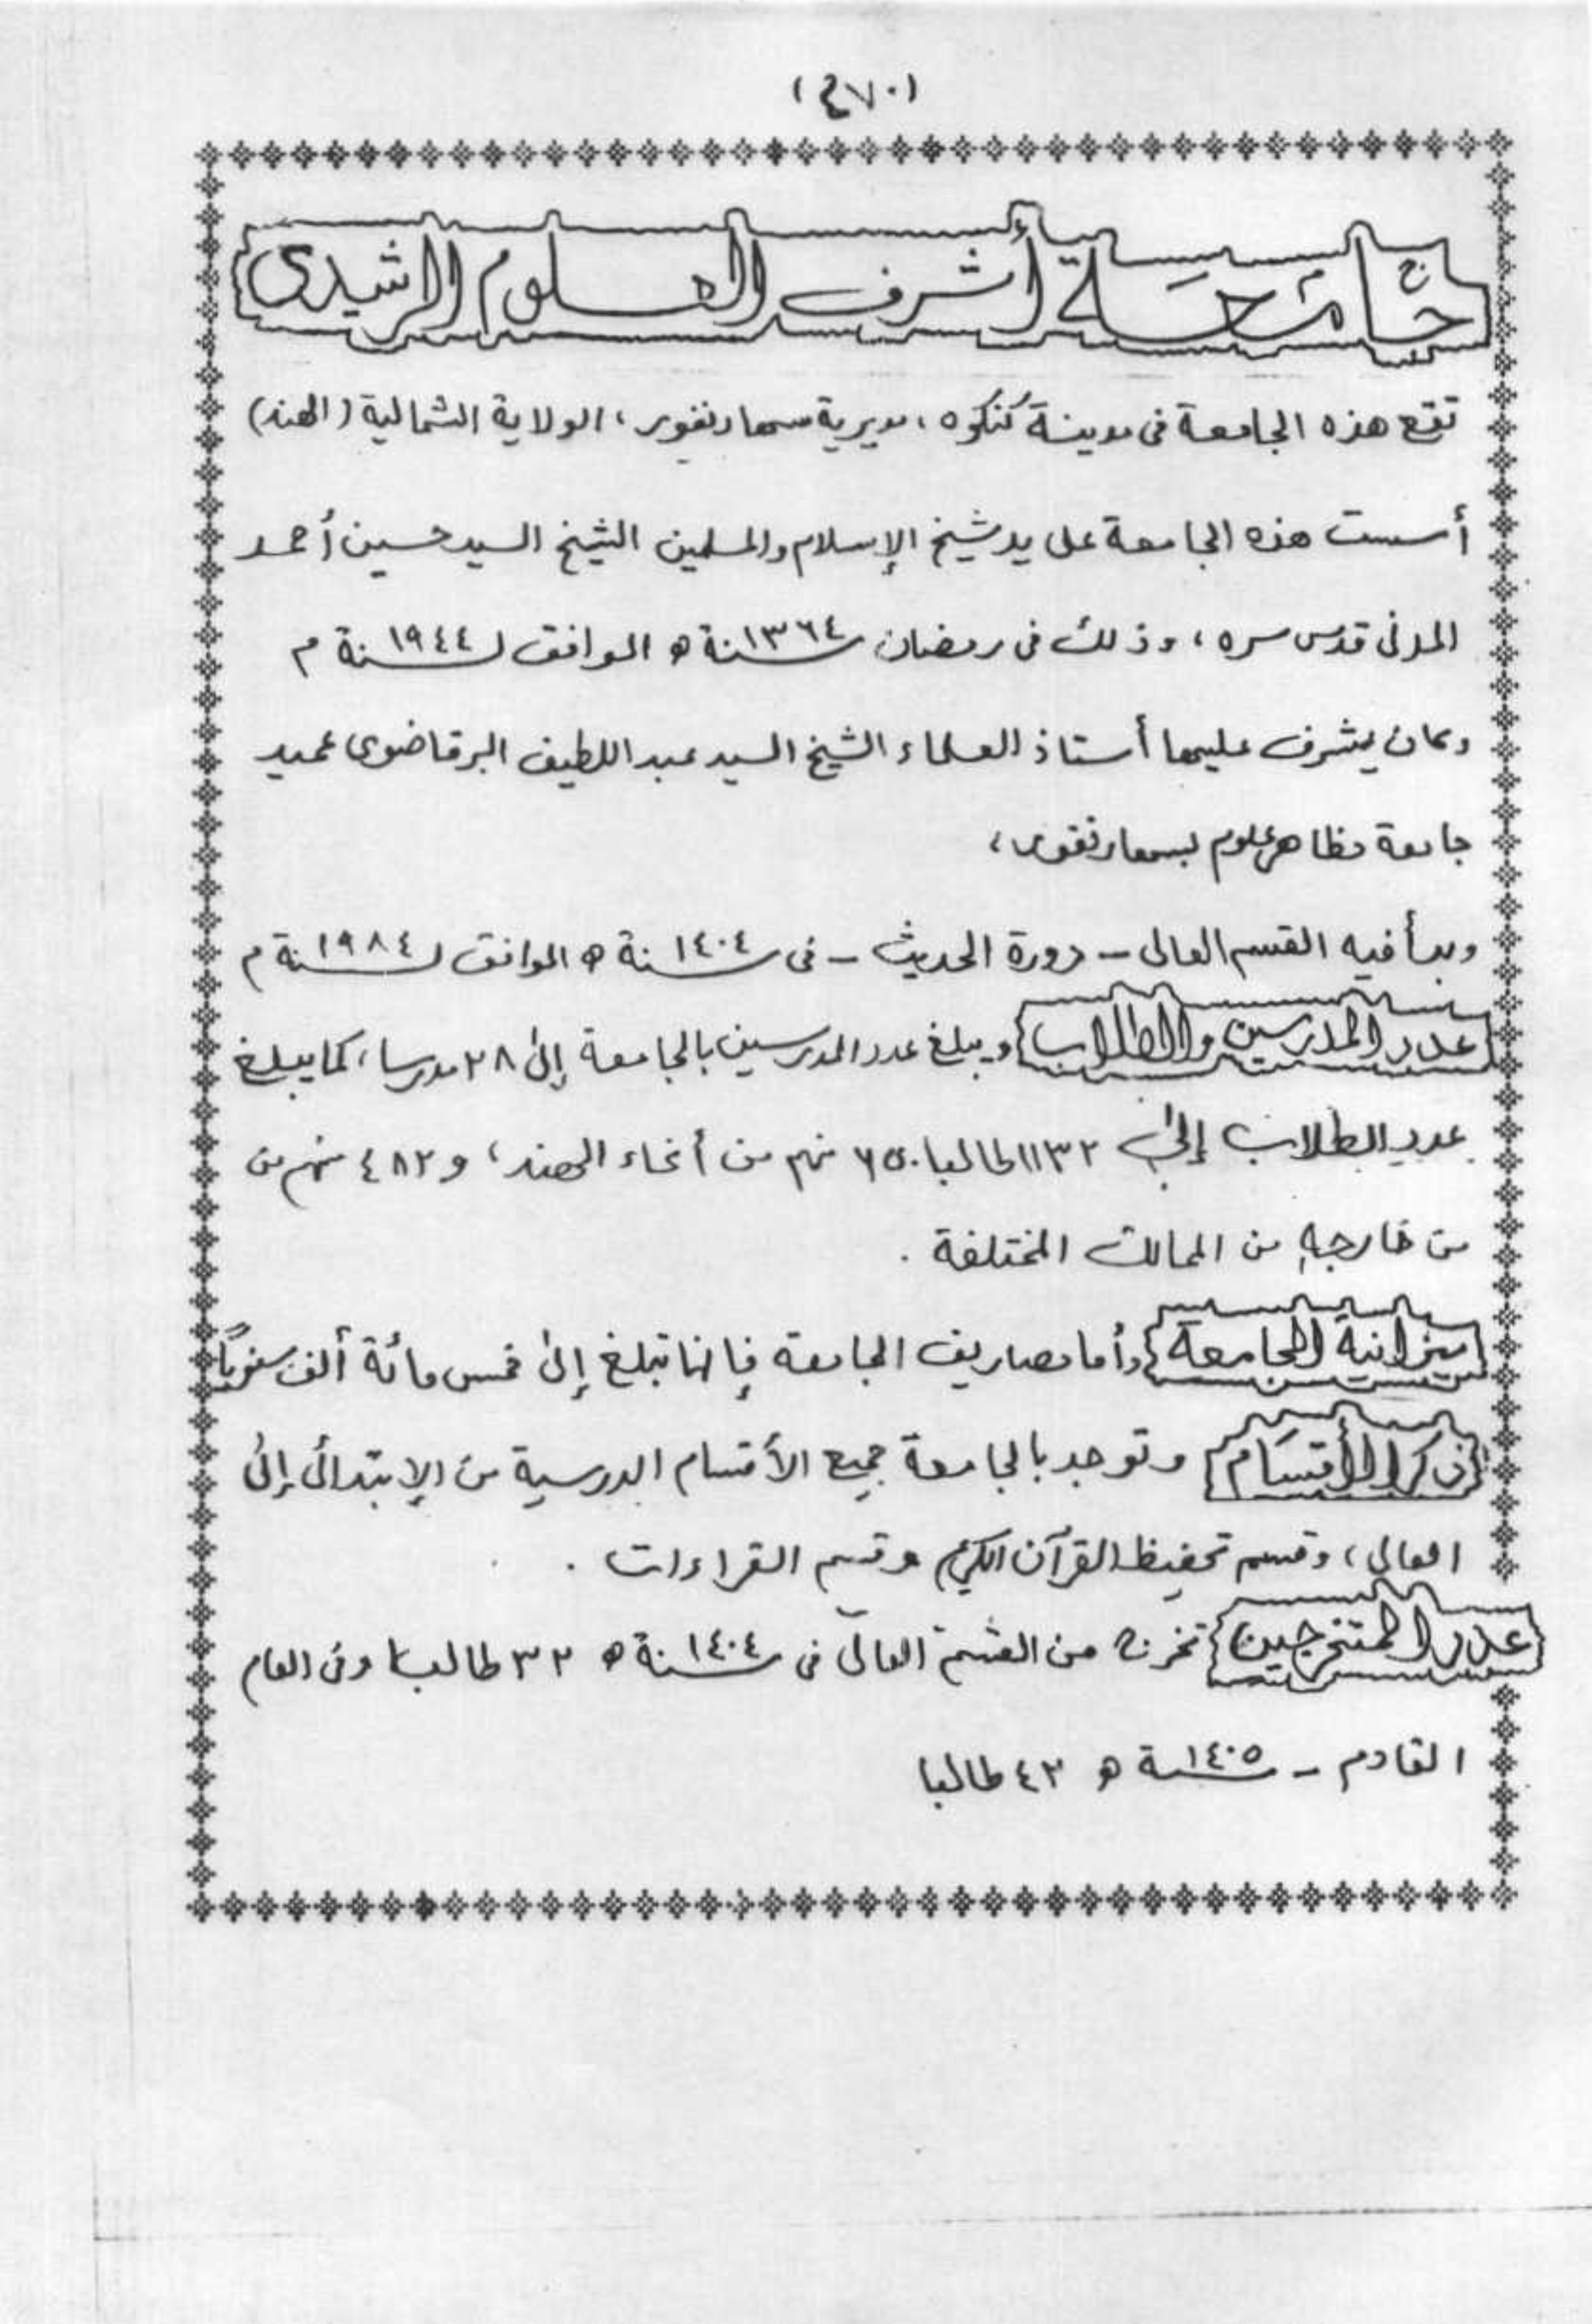 (٤٧٠)
جامعة أشرف العلوم الرشيدى
تقع هذه الجامعة فى مدينة كنكوه ، مديرية سهارنفور ، الولاية الشمالية (الهند)
أسست هذه الجامعة على يد شيخ الإسلام والمسلمين الشيخ السيد حسين أحمد
المدنى قدس سره ، وذلك فى رمضان سنة ١٣٦٤ ه الموافق لسنة ١٩٤٤ م
وكان يشرف عليها أستاذ العلماء الشيخ السيد عبد اللطيف البرقاضوى عميد
جامعة مظاهر علوم بسهارنفور ،
وبدأ فيه القسم العالى - دورة الحديث - فى سنة ١٤٠٤ ه الموافق لسنة ١٩٨٤ م
عدد المدرسين والطلاب ويبلغ عدد المدرسين بالجامعة إلى ٢٨ مدرسا ، كما يبلغ
عدد الطلاب إلى ١١٣٢ طالبا ٦٥٠ منهم من أنحاء الهند ، و ٤٨٢ منهم من
من خارجه من الممالك المختلفة .
ميزانية الجامعة وأما مصاريف الجامعة فإنها تبلغ إلى خمس مائة ألف سنوياً
ذكر الأقسام وتوجد بالجامعة جميع الأقسام الدرسية من الإبتدائى إلى
العالى ، وقسم تحفيظ القرآن الكريم وقسم القراءات .
عدد المتخرجين تخرج من القسم العالى فى سنة ١٤٠٤ ه ٣٢ طالبا وفى العام
القادم - سنة ١٤٠٥ ه ٤٢ طالبا